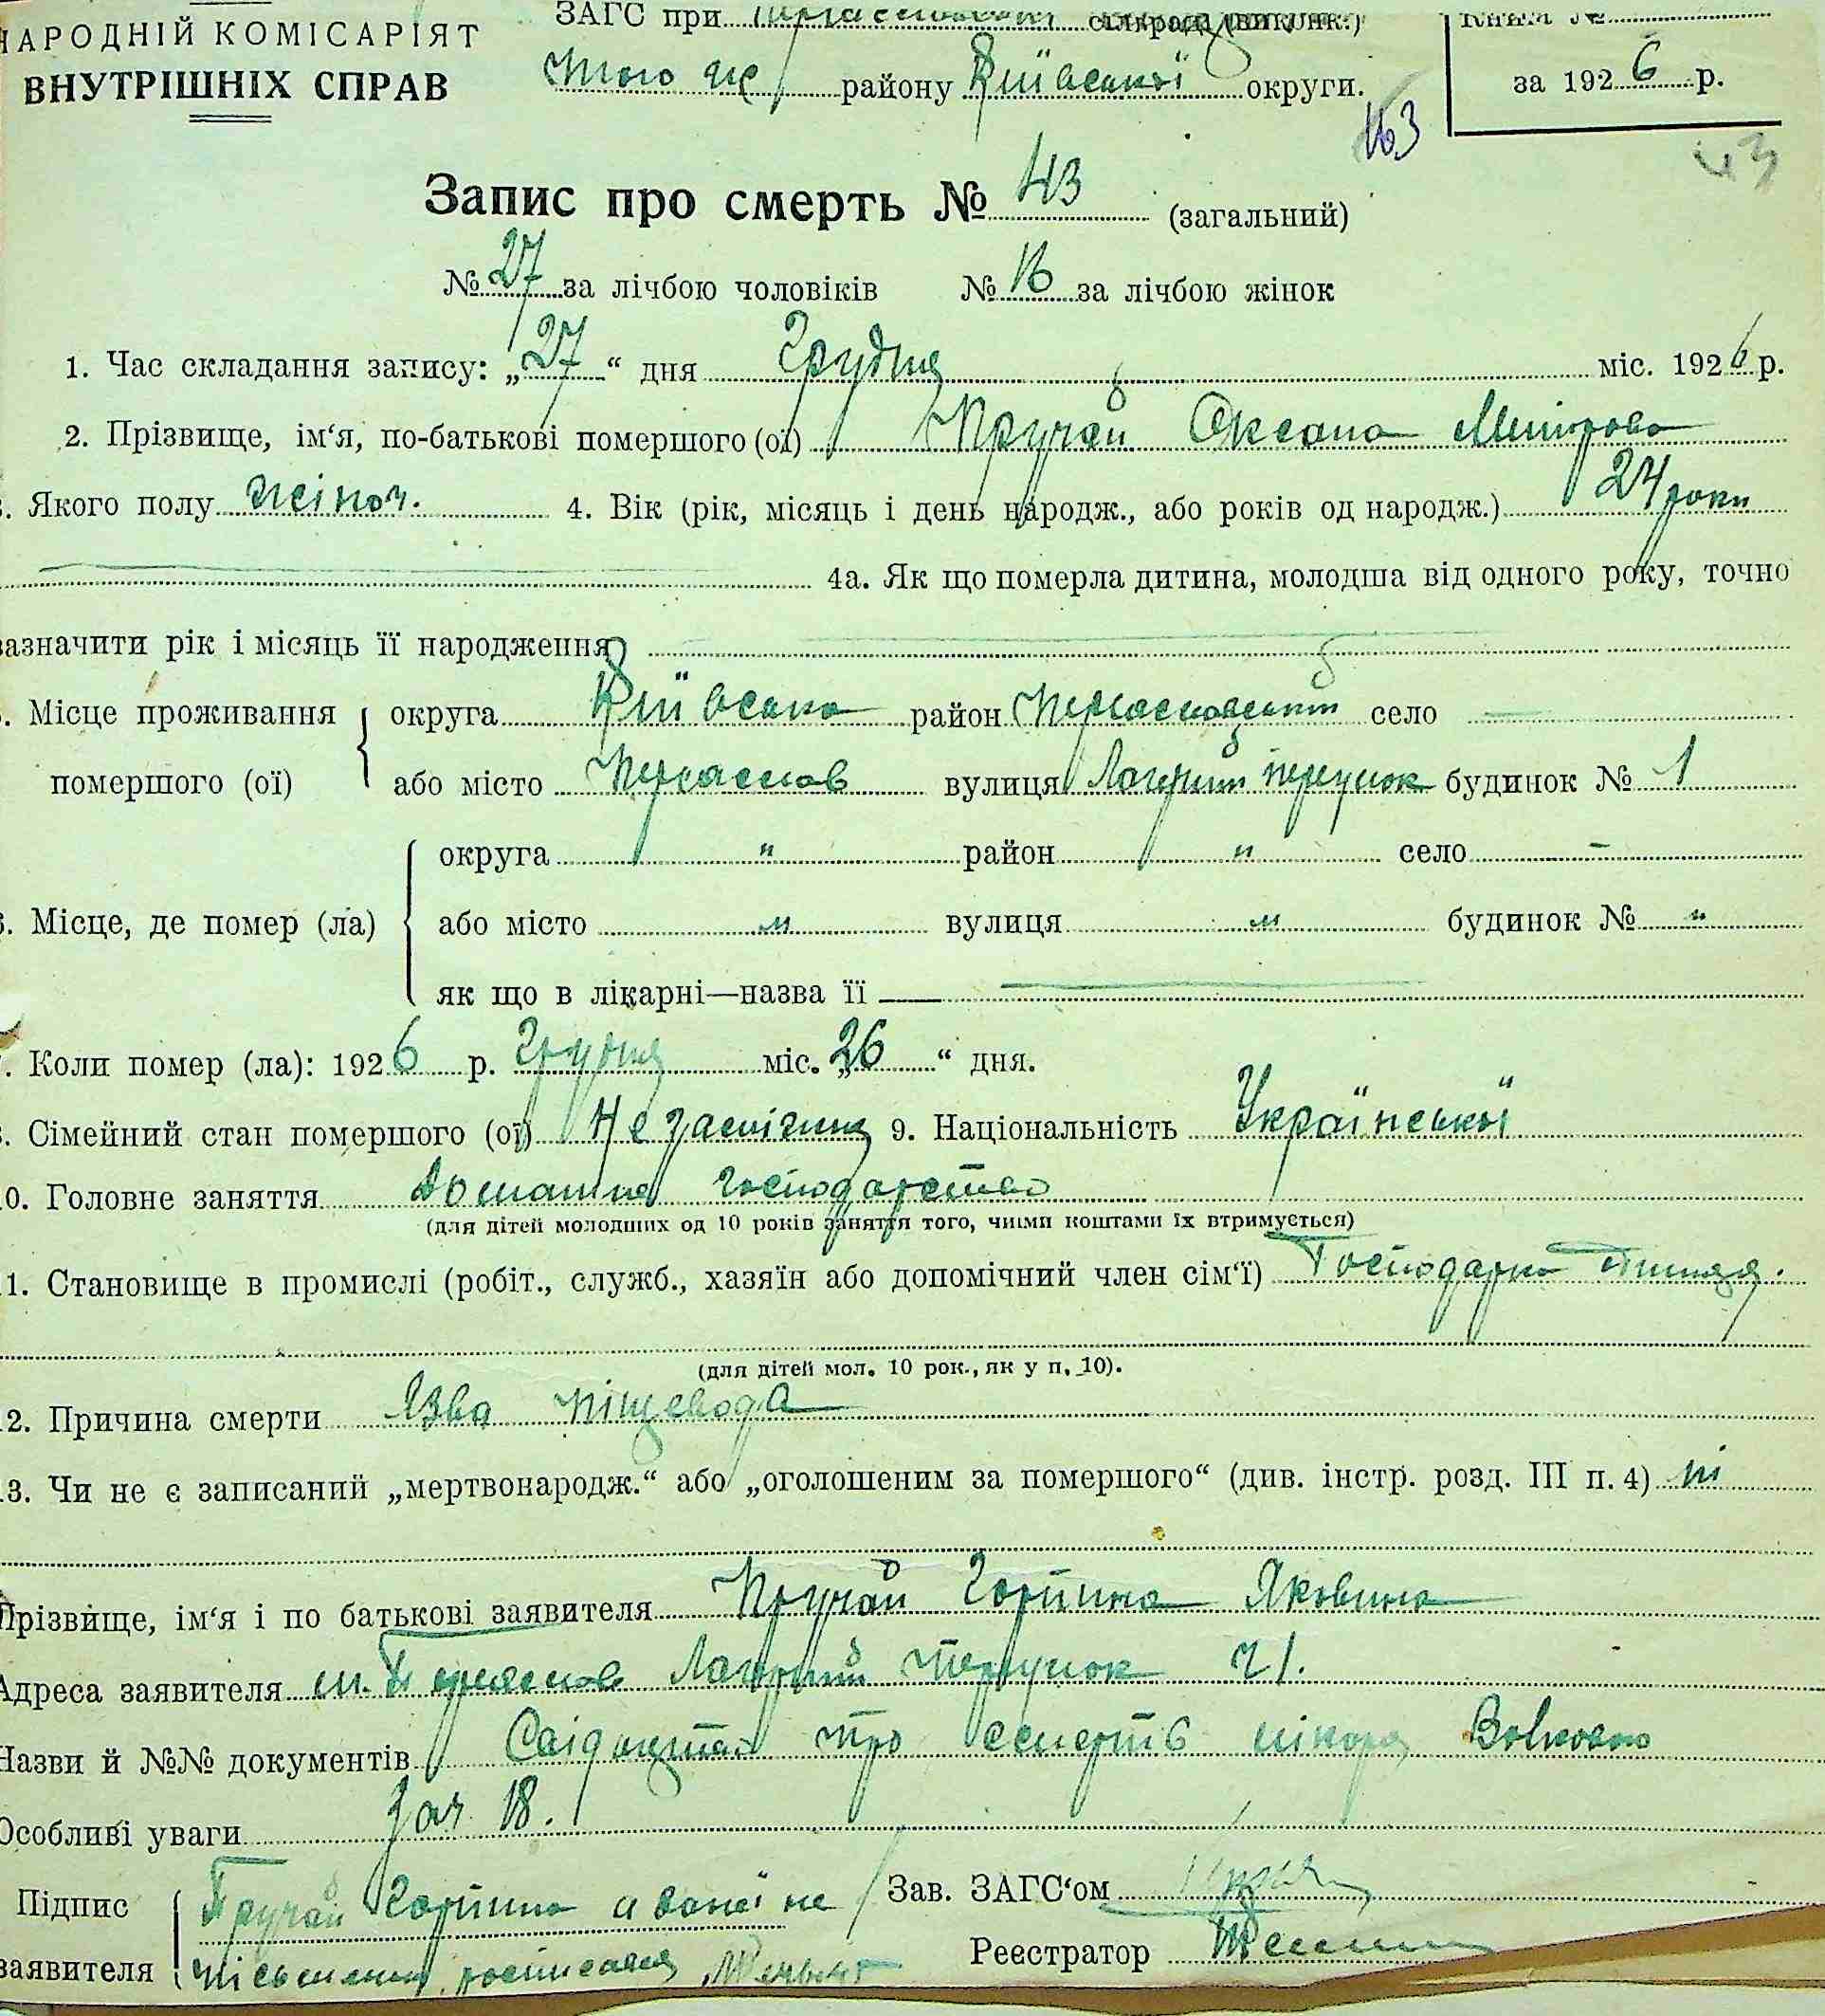 НАРОДНІЙ КОМІСАРІЯТ
ВНУТРІШНІХ СПРАВ
ЗАГС при сільраді (виконк.)
Того ж району Київської округи.
Книга №
за 1926 р.
163
43
Запис про смерть № 43 (загальний)
№ 27 за лічбою чоловіків № 16 за лічбою жінок
1. Час складання запису: „27“ дня Грудня міс. 1926 р.
2. Прізвище, ім‘я, по-батькові помершого (ої) Пручай Оксана
3. Якого полу жіноч. 4. Вік (рік, місяць і день народж., або років од народж.) 24 роки
4а. Як що померла дитина, молодша від одного року, точно
зазначити рік і місяць її народження
5. Місце проживання помершого (ої) округа Київська район Переяславський село —
або місто Переяслав вулиця будинок № 1
6. Місце, де помер (ла) округа " район " село -
або місто " вулиця " будинок № "
як що в лікарні—назва її
7. Коли помер (ла): 1926 р. Грудня міс. „26“ дня.
8. Сімейний стан помершого (ої) Не заміжня 9. Національність Української
10. Головне заняття Домашнє господарство
(для дітей молодших од 10 років заняття того, чиїми коштами їх втримується)
11. Становище в промислі (робіт., служб., хазяїн або допомічний член сім‘ї) Господарка
(для дітей мол. 10 рок., як у п. 10).
12. Причина смерти Язва піщевода
13. Чи не є записаний „мертвонародж.“ або „оголошеним за помершого“ (див. інстр. розд. III п. 4) ні
Прізвище, ім‘я і по батькові заявителя Пручай Горпина Яковина
Адреса заявителя м. Переяслов ч 1.
Назви й №№ документів Свідоцтво про смерть лікаря
Особливі уваги за ч 18.
Підпис заявителя Пручай Горпина а вона не
письменна, росписався
Зав. ЗАГС‘ом
Реєстратор